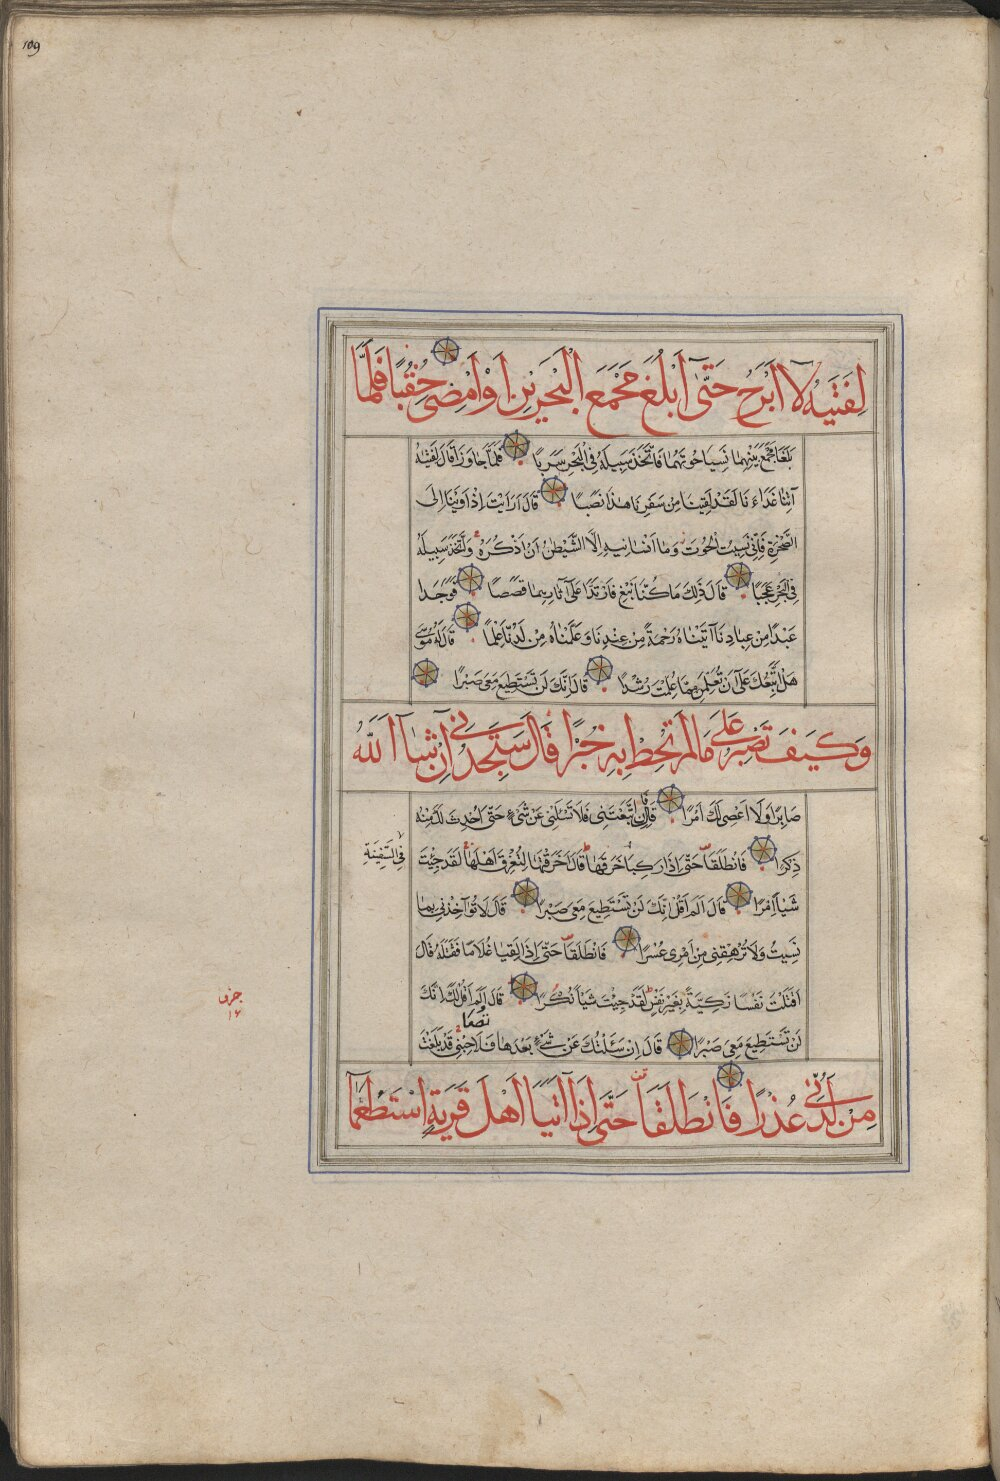 109
لِفَتٰيهُ لَآ اَبْرَحُ حَتّٰىٓ اَبْلُغَ مَجْمَعَ الْبَحْرَيْنِ اَوْ اَمْضِىَ حُقُبًا فَلَمَّا
بَلَغَا مَجْمَعَ بَيْنِهِمَا نَسِيَا حُوتَهُمَا فَاتَّخَذَ سَبِيلَهُ فِى الْبَحْرِ سَرَبًا فَلَمَّا جَاوَزَا قَالَ لِفَتٰيهُ
آتِنَا غَدَاءَنَا لَقَدْ لَقِينَا مِنْ سَفَرِنَا هٰذَا نَصَبًا قَالَ اَرَاَيْتَ اِذْ اَوَيْنَا اِلَى
الصَّخْرَةِ فَاِنِّى نَسِيتُ الْحُوتَ وَمَا اَنْسَانِيهُ اِلَّا الشَّيْطٰنُ اَنْ اَذْكُرَهُ وَاتَّخَذَ سَبِيلَهُ
فِى الْبَحْرِ عَجَبًا قَالَ ذٰلِكَ مَا كُنَّا نَبْغِ فَارْتَدَّا عَلٰىٓ آثَارِهِمَا قَصَصًا فَوَجَدَا
عَبْدًا مِنْ عِبَادِنَا آتَيْنَاهُ رَحْمَةً مِنْ عِنْدِنَا وَعَلَّمْنَاهُ مِنْ لَدُنَّا عِلْمًا قَالَ لَهُ مُوسٰى
هَلْ اَتَّبِعُكَ عَلٰىٓ اَنْ تُعَلِّمَنِ مِمَّا عُلِّمْتَ رُشْدًا قَالَ اِنَّكَ لَنْ تَسْتَطِيعَ مَعِىَ صَبْرًا
وَكَيْفَ تَصْبِرُ عَلٰى مَا لَمْ تُحِطْ بِهِ خُبْرًا قَالَ سَتَجِدُنِى اِنْ شَآءَ اللّٰهُ
صَابِرًا وَلَا اَعْصِى لَكَ اَمْرًا قَالَ فَاِنِ اتَّبَعْتَنِى فَلَا تَسْئَلْنِى عَنْ شَىْءٍ حَتّٰى اُحْدِثَ لَكَ مِنْهُ
ذِكْرًا فَانْطَلَقَا حَتّٰى اِذَا رَكِبَا خَرَقَهَا قَالَ اَخَرَقْتَهَا لِتُغْرِقَ اَهْلَهَا لَقَدْ جِئْتَ
فِى السَّفِينَةِ
شَيْئًا اِمْرًا قَالَ اَلَمْ اَقُلْ اِنَّكَ لَنْ تَسْتَطِيعَ مَعِىَ صَبْرًا قَالَ لَا تُوآخِذْنِى بِمَا
نَسِيتُ وَلَا تُرْهِقْنِى مِنْ اَمْرِى عُسْرًا فَانْطَلَقَا حَتّٰى اِذَا لَقِيَا غُلَامًا فَقَتَلَهُ قَالَ
اَقَتَلْتَ نَفْسًا زَكِيَّةً بِغَيْرِ نَفْسٍ لَقَدْ جِئْتَ شَيْئًا نُكْرًا قَالَ اَلَمْ اَقُلْ لَكَ اِنَّكَ
جزو
١٦
لَنْ تَسْتَطِيعَ مَعِىَ صَبْرًا قَالَ اِنْ سَئَلْتُكَ عَنْ شَىْءٍ بَعْدَهَا فَلَا تُصَاحِبْنِى قَدْ بَلَغْتَ
مِنْ لَدُنِّى عُذْرًا فَانْطَلَقَا حَتّٰى اِذَآ اَتَيَآ اَهْلَ قَرْيَةٍ اسْتَطْعَمَآ